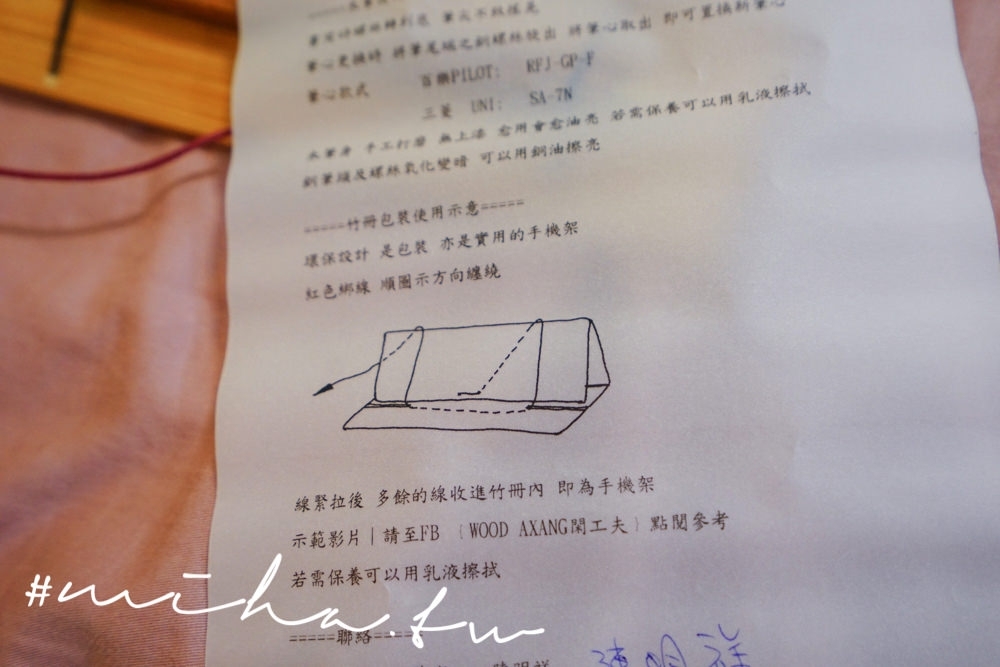 筆心更換時 將筆尾端之銅螺絲旋出 將筆心取出 即可置換新筆心
筆心款式 百樂PILOT: RFJ-GP-F
三菱 UNI: SA-7N
木筆身 手工打磨 無上漆 愈用會愈油亮 若需保養可以用乳液擦拭
銅筆頭及螺絲氧化變暗 可以用銅油擦亮
=====竹冊包裝使用示意=====
環保設計 是包裝 亦是實用的手機架
紅色綁線 順圖示方向纏繞
線緊拉後 多餘的線收進竹冊內 即為手機架
示範影片|請至FB {WOOD AXANG閑工夫} 點閱參考
若需保養可以用乳液擦拭
=====聯絡=====
#miha.tw